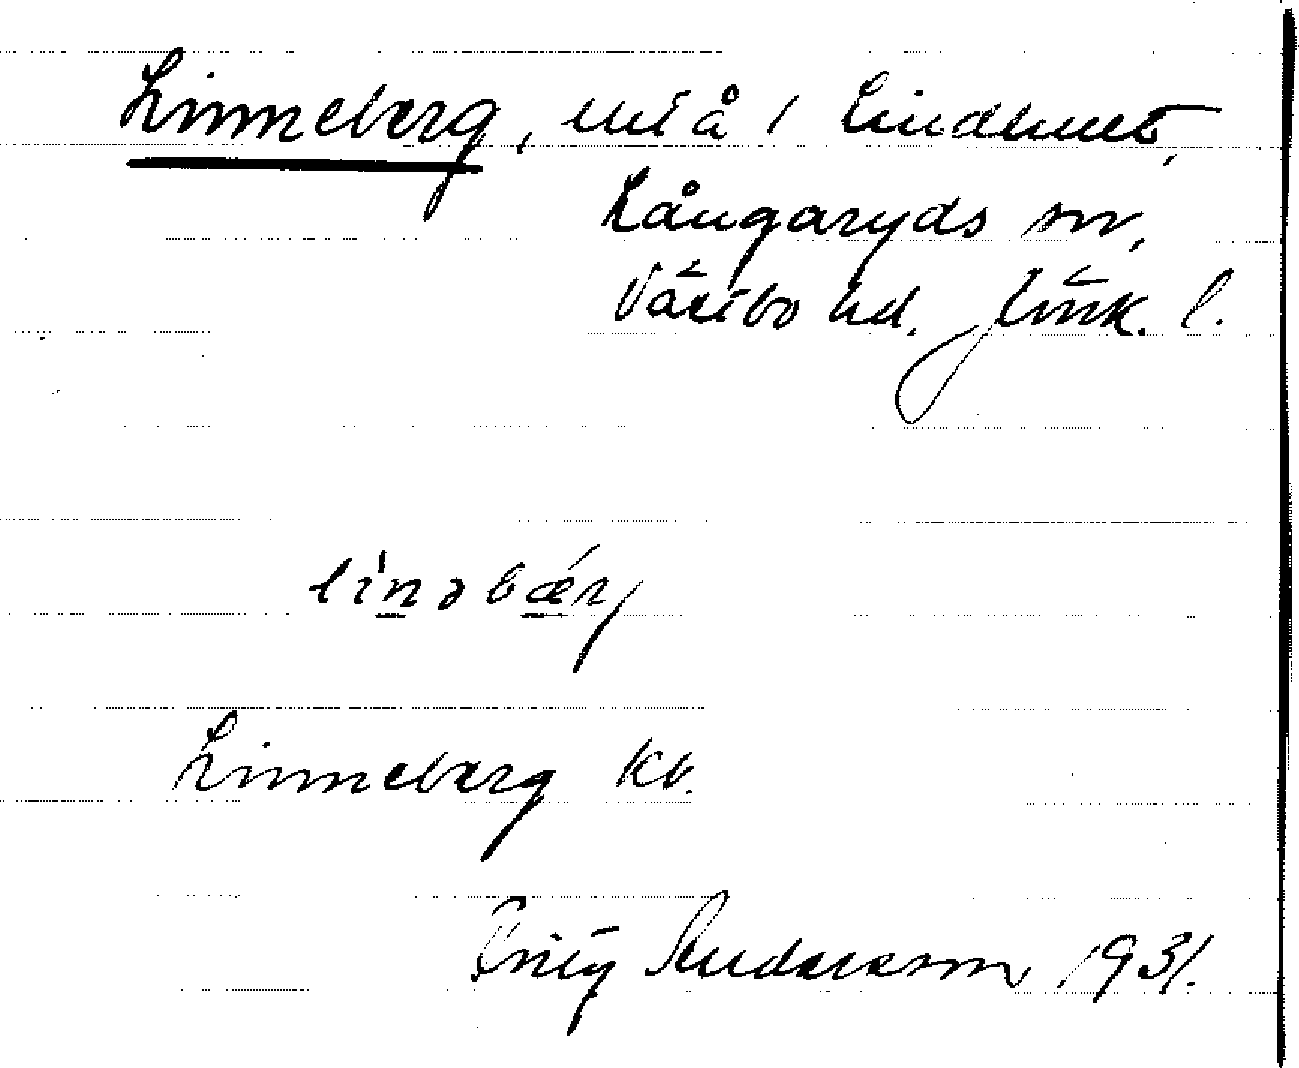 Linneberg, utfå i Lindhult,
Långaryds sn,
Västbo hd. Jönk. l.
linəbærj
Linneberg kv.
Fritz Andersson 1931.